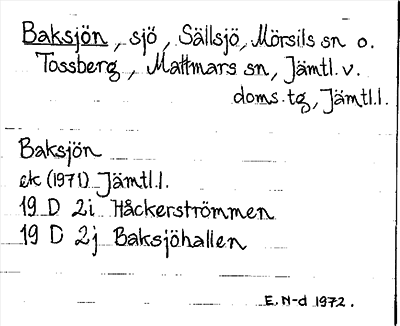 Baksjön, sjö, Sällsjö, Mörsils sn o.
Tossberg, Mattmars sn, Jämtl. v.
doms. tg, Jämtl. l.
Baksjön
ek (1971) Jämtl. l.
19 D 2i Håckerströmmen
19 D 2j Baksjöhallen
E. N-d 1972.